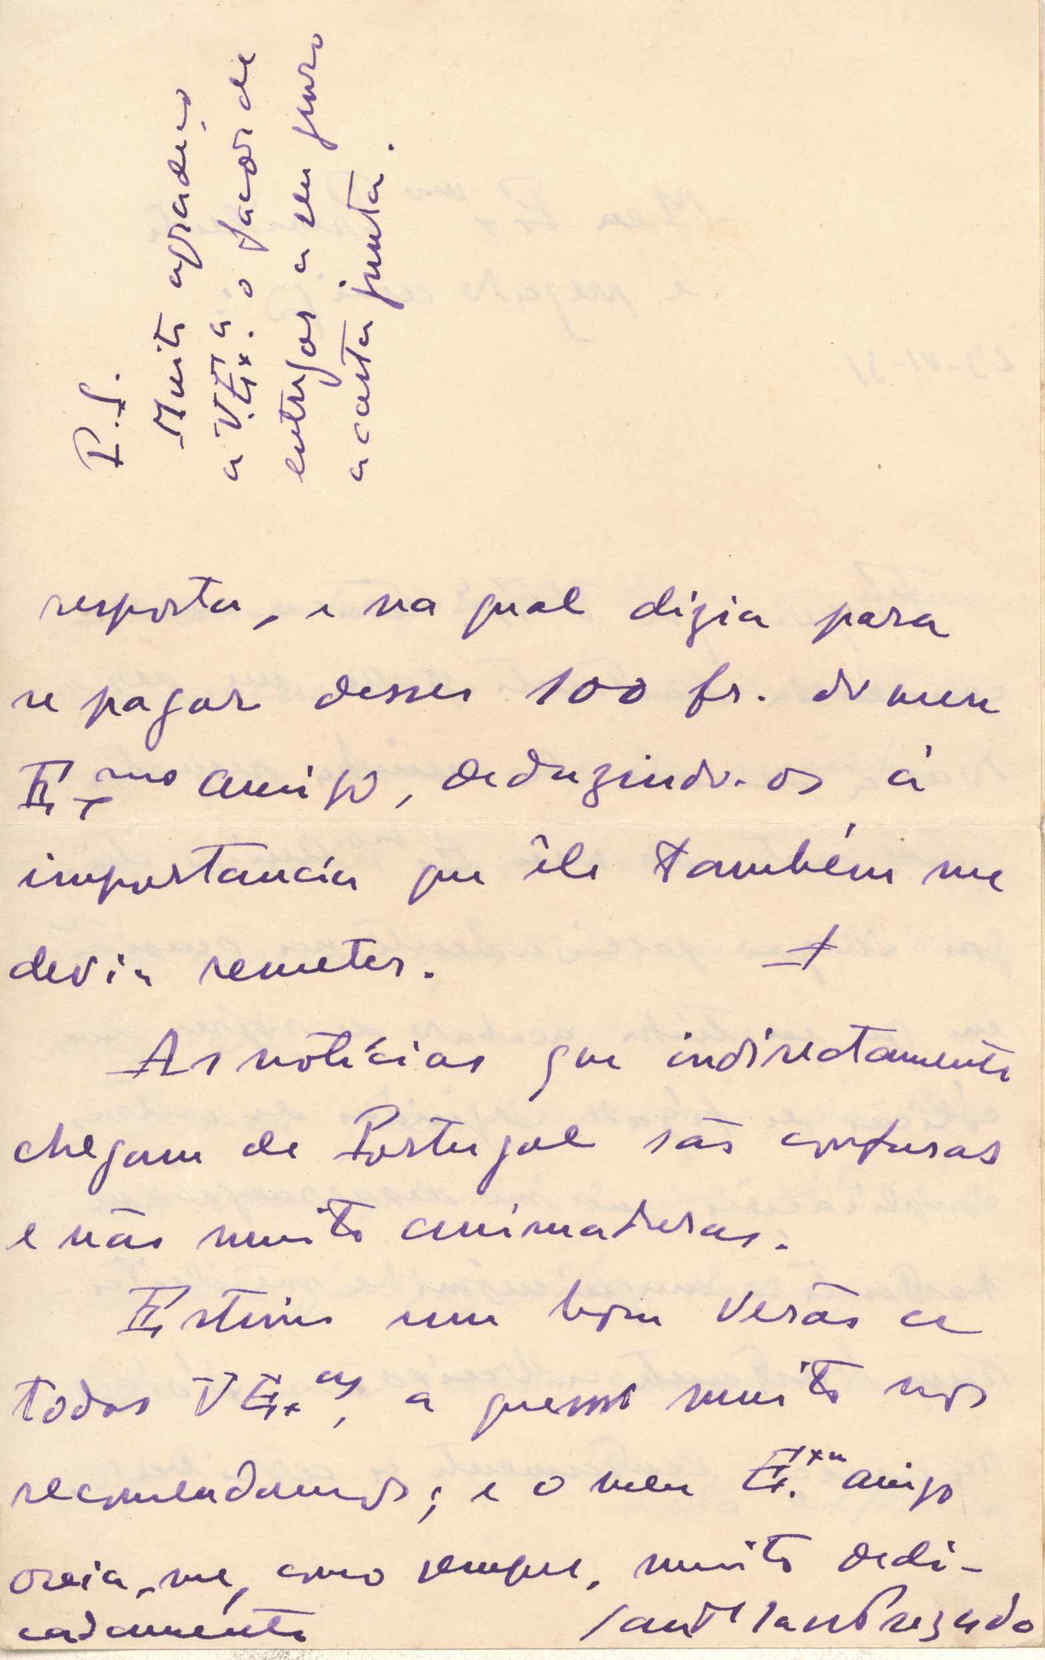 P.S.
Muito agradeço
a V. Ex.ª o favor de
entregar a seu genro
a carta junta.
resposta, e na qual dizia para
se pagar desses 100 fr. do meu
Ex.mo amigo, deduzindo-os á
importancia que êle também me
devia remeter.
As notícias que indirectamente
chegam de Portugal são confusas
e não muito animadoras.
Estimo um bom verão a
todos V Ex.as, a quem muito nos
recomendamos; e o meu Ex.mo amigo
creia-me, como sempre, muito dedi-
cadamente